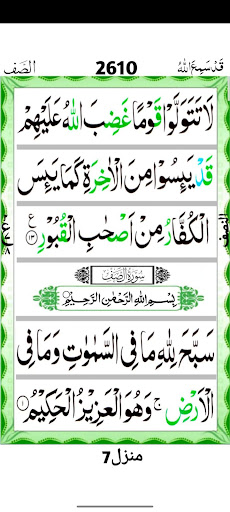 الصف 2610 قد سمع الله
لَا تَتَوَلَّوْا قَوْمًا غَضِبَ اللّٰهُ عَلَيْهِمْ
قَدْ يَئِسُوْا مِنَ الْاٰخِرَةِ كَمَا يَئِسَ
الْكُفَّارُ مِنْ اَصْحٰبِ الْقُبُوْرِ ۱۳ ع
سورة الصف
بِسْمِ اللّٰهِ الرَّحْمٰنِ الرَّحِيْمِ
سَبَّحَ لِلّٰهِ مَا فِى السَّمٰوٰتِ وَمَا فِى
الْاَرْضِ ۚ وَهُوَ الْعَزِيْزُ الْحَكِيْمُ ۱
منزل 7